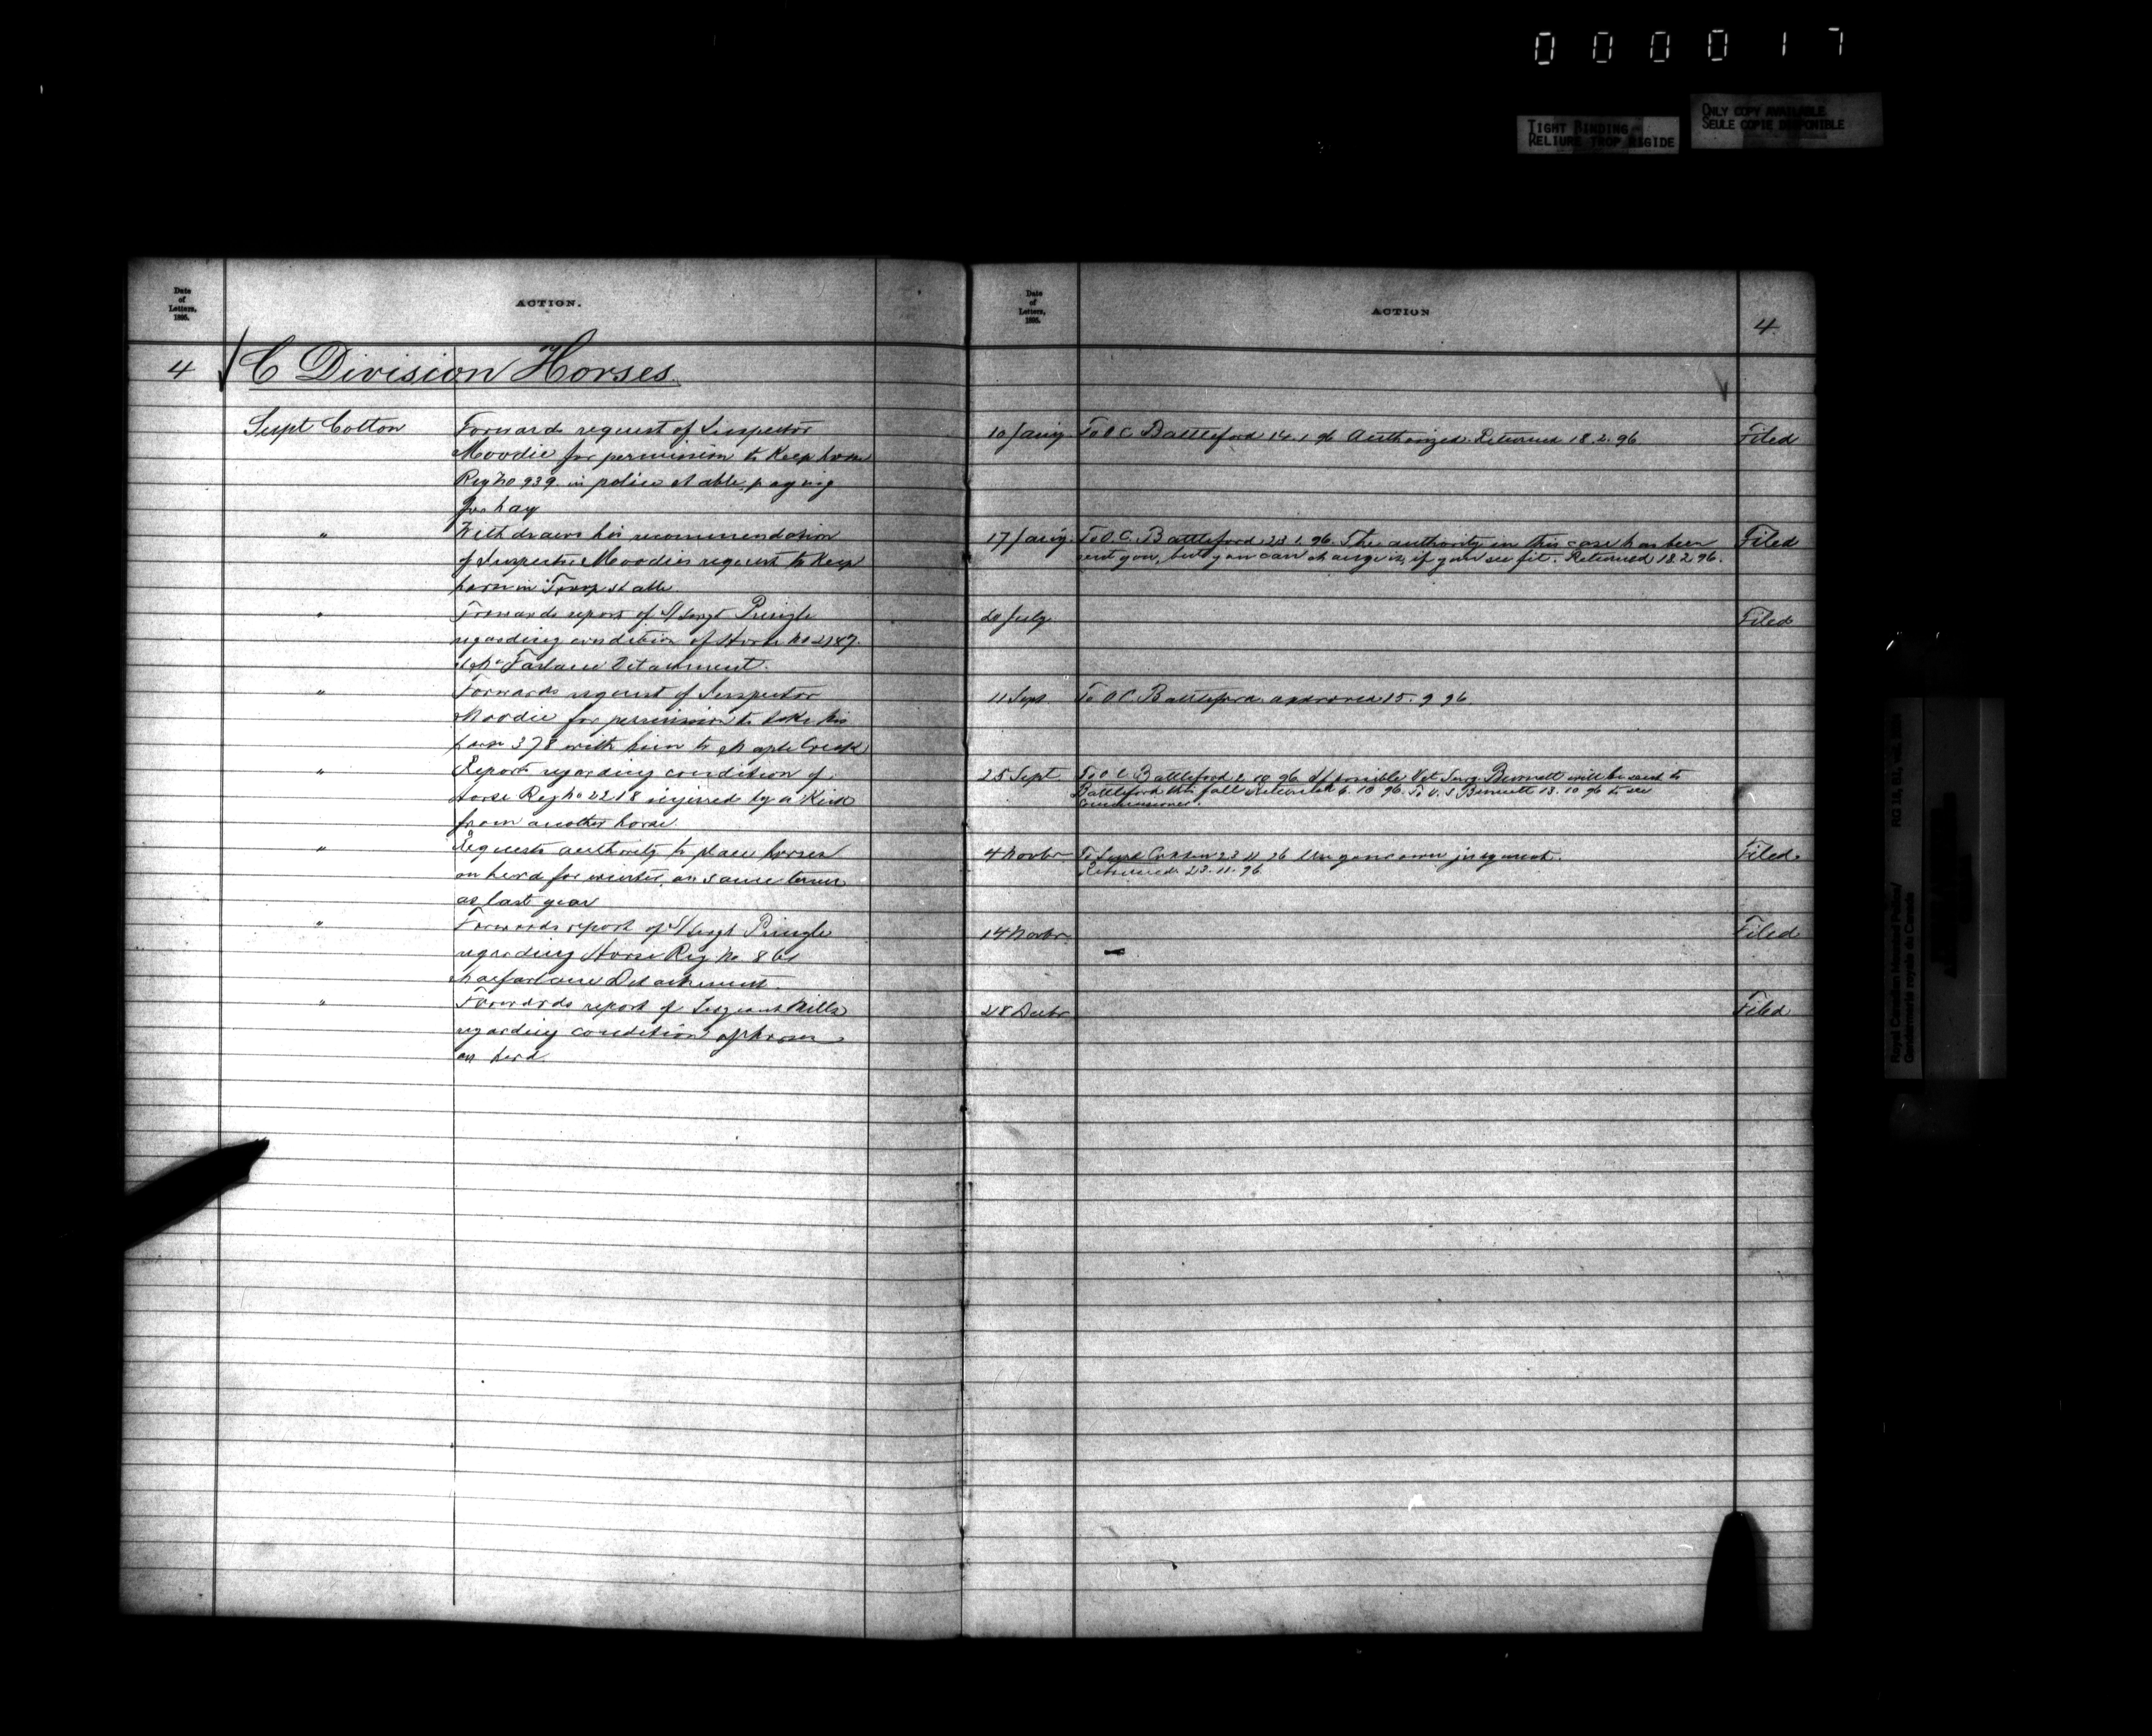 000017
TIGHT BINDING
RELIURE TROP RIGIDE
ONLY COPY AVAILABLE
SEULE COPIE DISPONIBLE
Date of Letters, 1895.
ACTION.
4 C Division Horses
Supt Cotton
Forwards request of Inspector
Moodie for permission to keep horse
Reg No 939 in police stable paying
for hay
" Withdraws his recommendation
of Inspector Moodies request to keep
horse in Troop stable
" Forwards report of S/Sergt Pringle
regarding condition of Horse No 2187.
McFarlane Detachment.
" Forwards request of Inspector
Moodie for permission to take his
horse 378 with him to Maple Creek
" Reports regarding condition of
Horse Reg No 2218 injured by a Kick
from another horse.
" Requests authority to place horses
on herd for winter, on same terms
as last year
" Forwards report of S/Sergt Pringle
regarding Horse Reg No.
Macfarlane Detachment.
" Forwards report of Sergeant Mills
regarding condition of horses
on herd.
Date of Letters, 1895.
ACTION
4.
10 Jany. To O.C. Battleford 14.1.96 Authorized. Returned 18.2.96. Filed
17 Jany. To O.C. Battleford 23.1.96. The authority in this case has been Filed
sent you, but you can change it, if you see fit. Returned 18.2.96.
20 July Filed
11 Sept To O C Battleford approved 15.9.96.
25 Sept To O.C. Battleford 2.10.96 If possible Vet Surg. Burnett will be sent to
Battleford this fall. Returned 6.10.96. To V.S. Burnett 13.10.96 to see
Commissioner.
4 Novbr To Supt Cotton 23 11 96 Use your own judgment. Filed.
Returned 23.11.96
14 Novbr Filed
28 Decbr Filed
Royal Canadian Mounted Police/
Gendarmerie royale du Canada
RG 18, B1, vol.